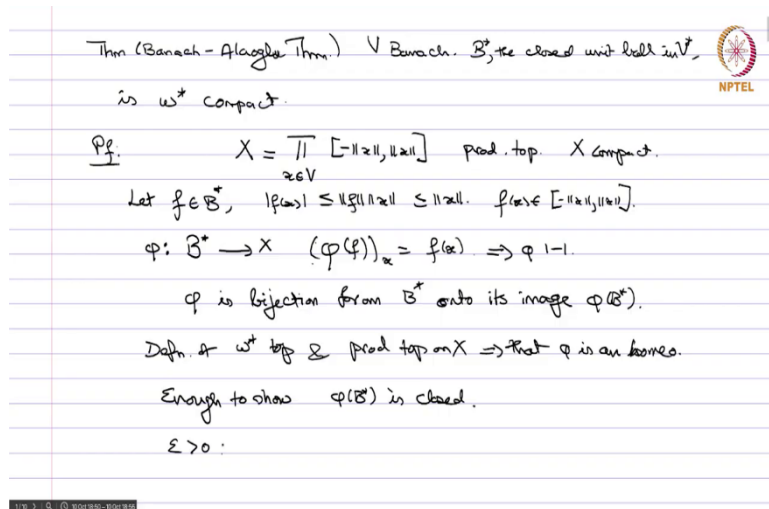 Thm (Banach-Alaoglu Thm.) V Banach. B*, the closed unit ball in V*,
NPTEL
is w* compact.
Pf. X = ∏_{x∈V} [-||x||, ||x||] prod. top. X compact.
Let f∈B*, |f(x)| ≤ ||f|| ||x|| ≤ ||x||. f(x)∈ [-||x||, ||x||].
φ: B* → X (φ(f))_x = f(x) ⇒ φ 1-1.
φ is bijection from B* onto its image φ(B*).
Defn. of w* top & prod top on X ⇒ that φ is an homeo.
Enough to show φ(B*) is closed.
ε>0 :